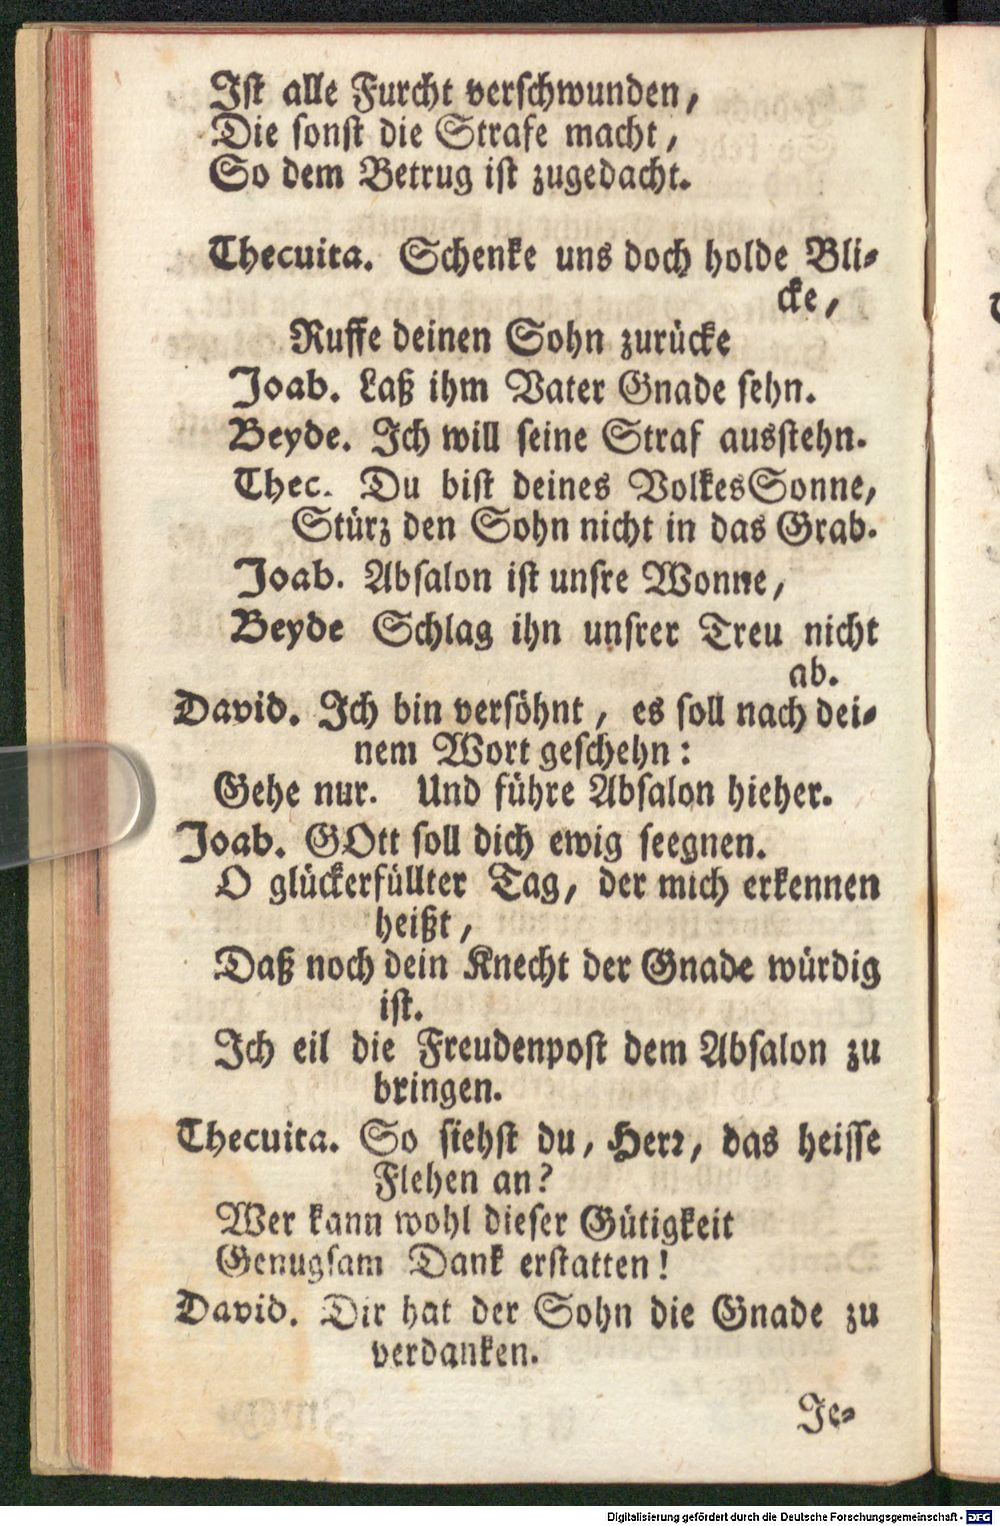 Ist alle Furcht verschwunden,
Die sonst die Strafe macht,
So dem Betrug ist zugedacht.
Thecuita. Schenke uns doch holde Bli-
cke,
Ruffe deinen Sohn zurücke
Joab. Laß ihm Vater Gnade sehn.
Beyde. Ich will seine Straf ausstehn.
Thec. Du bist deines Volkes Sonne,
Stürz den Sohn nicht in das Grab.
Joab. Absalon ist unsre Wonne,
Beyde Schlag ihn unsrer Treu nicht
ab.
David. Ich bin versöhnt, es soll nach dei-
nem Wort geschehn:
Gehe nur. Und führe Absalon hieher.
Joab. GOtt soll dich ewig seegnen.
O glückerfüllter Tag, der mich erkennen
heißt,
Daß noch dein Knecht der Gnade würdig
ist.
Ich eil die Freudenpost dem Absalon zu
bringen.
Thecuita. So siehst du, Herr, das heisse
Flehen an?
Wer kann wohl dieser Gütigkeit
Genugsam Dank erstatten!
David. Dir hat der Sohn die Gnade zu
verdanken.
Je-
Digitalisierung gefördert durch die Deutsche Forschungsgemeinschaft - DFG